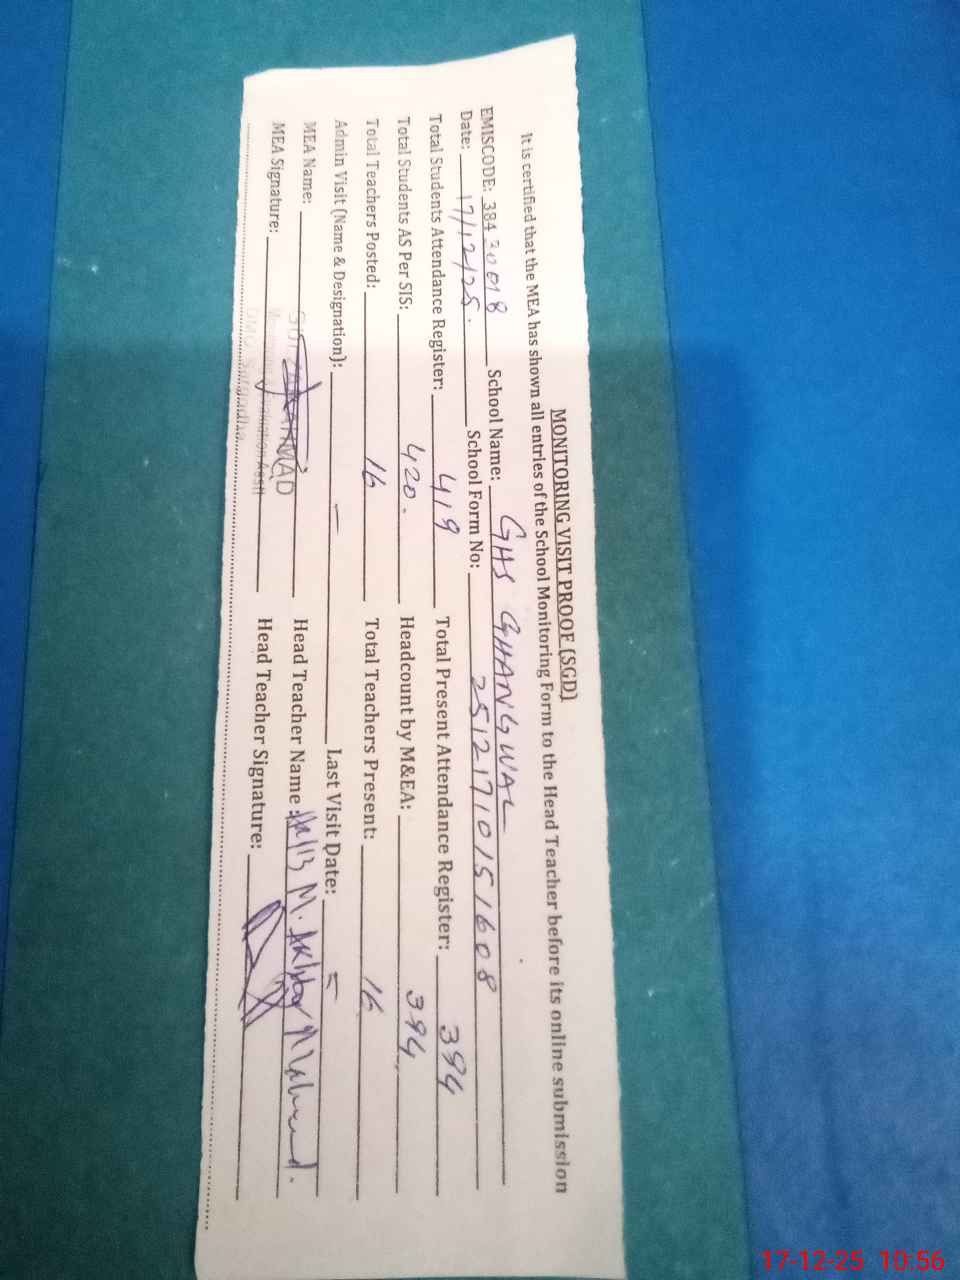 MONITORING VISIT PROOF (SGD)
It is certified that the MEA has shown all entries of the School Monitoring Form to the Head Teacher before its online submission
EMISCODE: 38420018 School Name: GHS GHANGWAL
Date: 17/12/25. School Form No: 25121710151608
Total Students Attendance Register: 419 Total Present Attendance Register: 394
Total Students AS Per SIS: 420. Headcount by M&EA: 394
Total Teachers Posted: 16 Total Teachers Present: 16
Admin Visit (Name & Designation): — Last Visit Date:
MEA Name: AHMAD Head Teacher Name: M. Akhbar
MEA Signature: Head Teacher Signature:
17-12-25 10:56